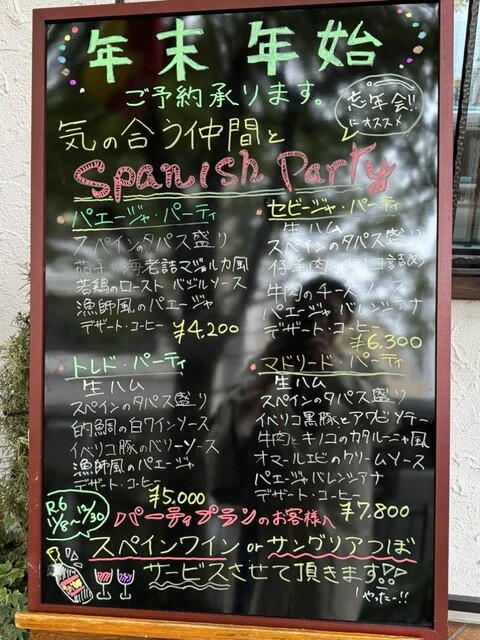 年末年始
ご予約承ります。
忘年会!!
にオススメ
気の合う仲間と
Spanish Party
パエージャ・パーティ
スペインのタパス盛り
茄子の海老詰マジョルカ風
若鶏のロースト バジルソース
漁師風のパエージャ
デザート・コーヒー
¥4,200
セビージャ・パーティ
生ハム
スペインのタパス盛り
仔羊肉の詰め
牛肉のチーズソース
パエージャ バレンシアナ
デザート・コーヒー
¥6,300
トレド・パーティ
生ハム
スペインのタパス盛り
的鯛の白ワインソース
イベリコ豚のベリーソース
漁師風のパエージャ
デザート・コーヒー
¥5,000
マドリード・パーティ
生ハム
スペインのタパス盛り
イベリコ黒豚とアワビソテー
牛肉とキノコのカタルーニャ風
オマールエビのクリームソース
パエージャ バレンシアナ
デザート・コーヒー
¥7,800
R.6
11/8〜12/30
パーティプランのお客様へ
スペインワイン or サングリアつぼ
サービスさせて頂きます!!
やったー!!